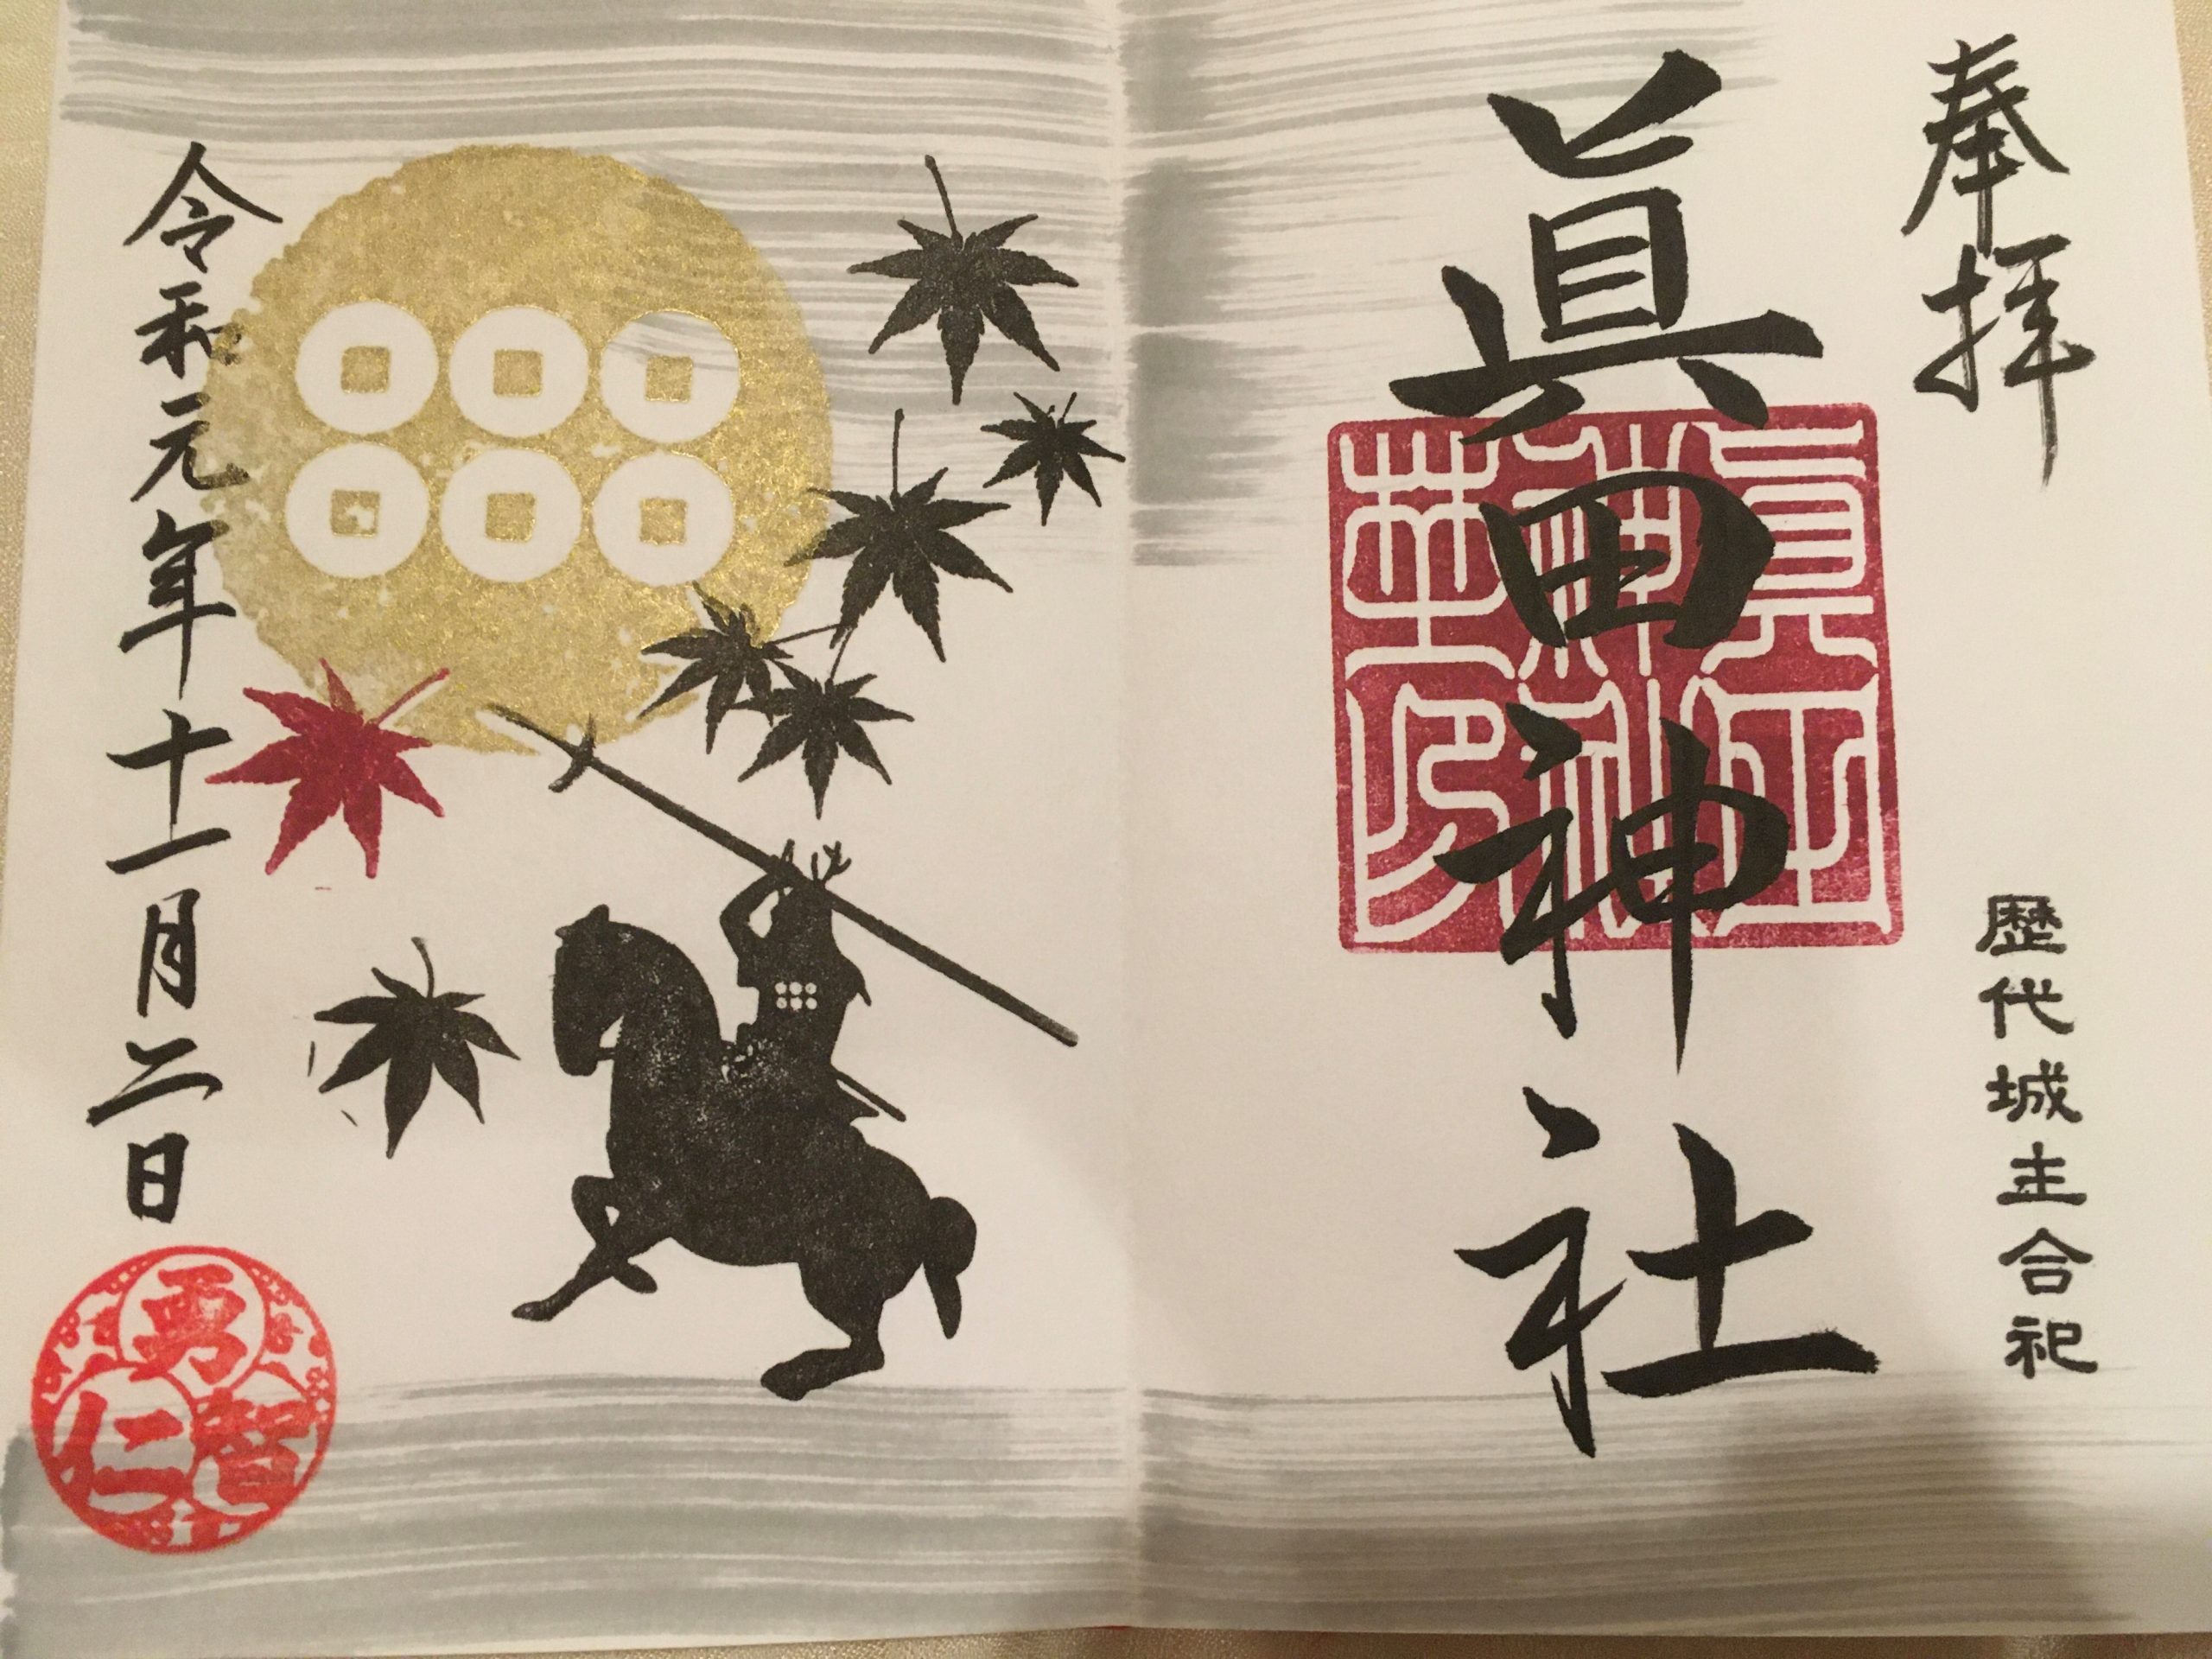 奉拝
歴代城主合祀
眞田神社
令和元年十一月二日
勇
仁智